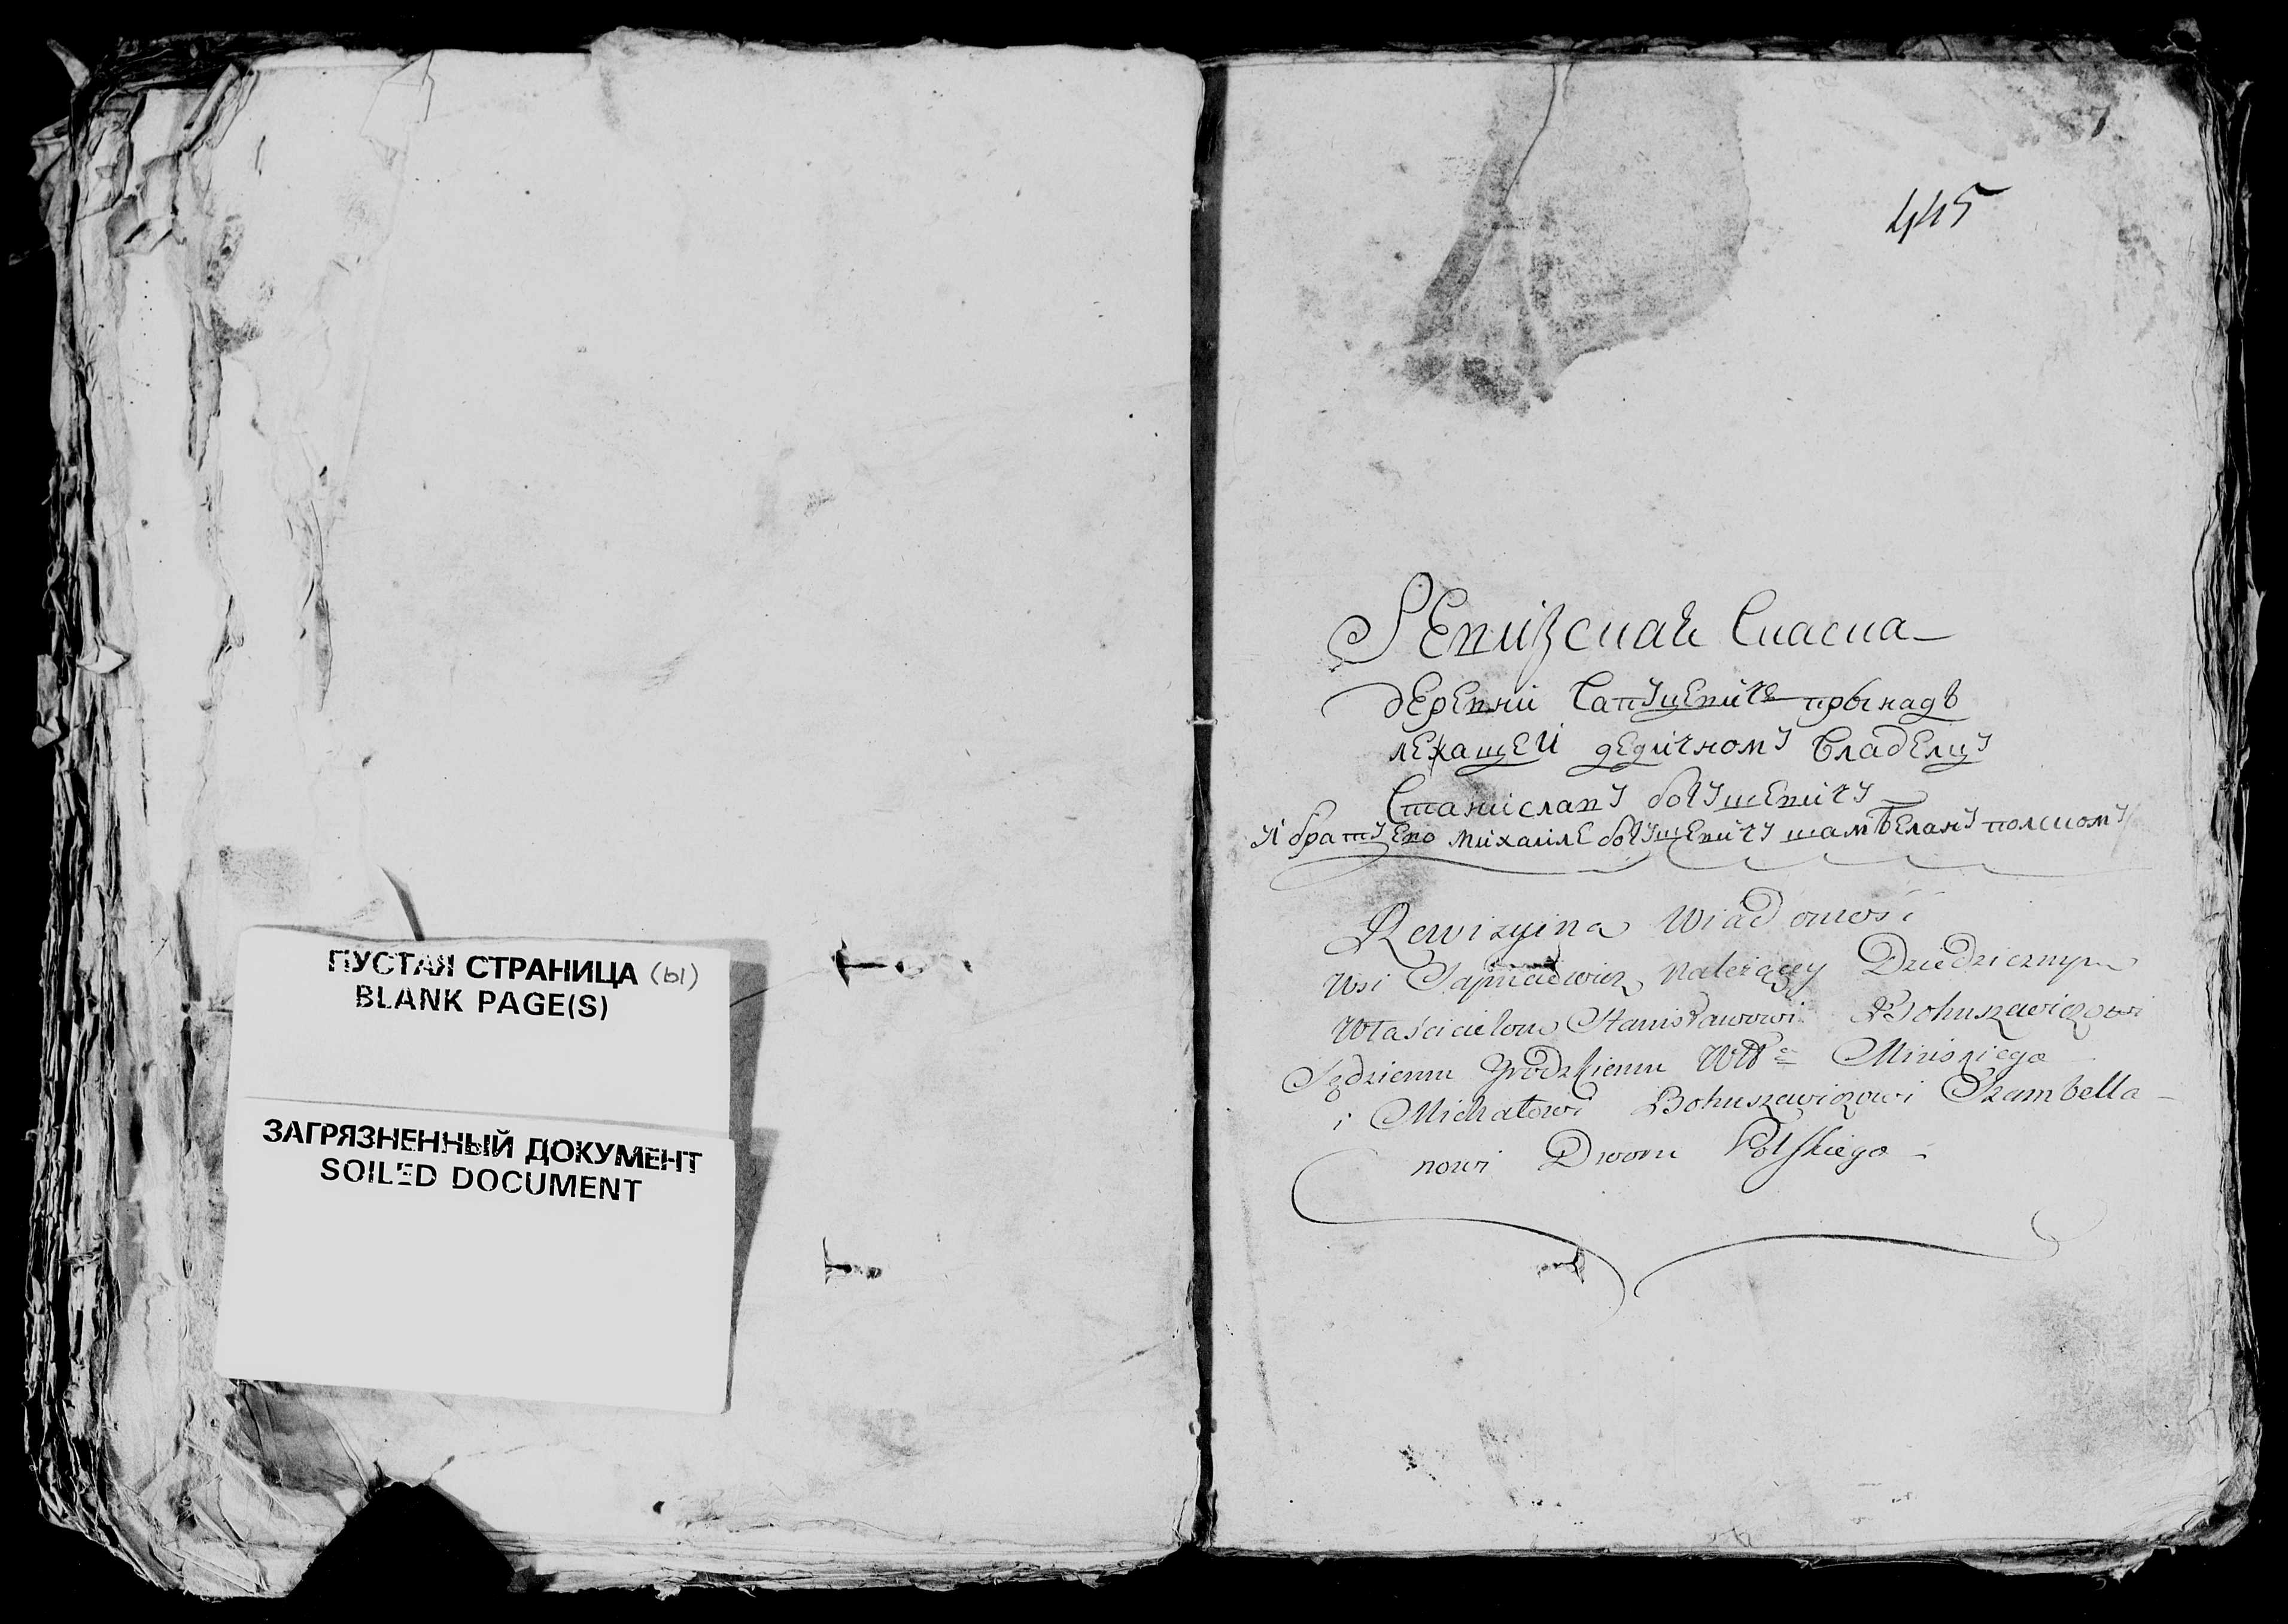 ПУСТАЯ СТРАНИЦА (Ы)
BLANK PAGE(S)
ЗАГРЯЗНЕННЫЙ ДОКУМЕНТ
SOILED DOCUMENT
67
445
Ревизская Скаска
деревни прынадъ
лежащей дедичному владелцу
Станиславу богушевичу
И брату Ево Михаиле богушевичу шамбелану полскому
Rewizyina Wiadomość
Wsi należącey Dziedzicznym
Właścicielom Stanisławowi Bohuszewiczowi
Sędziemu Grodzkiemu Mińskiego
i Michałowi Bohuszewiczowi Szambella-
nowi Dworu Polskiego